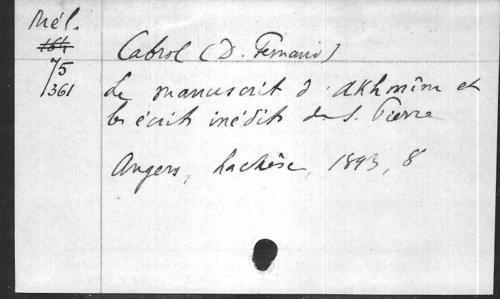 Mél.
164
75
361
Cabrol (D. Fernand)
Le manuscrit d'Akhmîm et
les écrits inédits de S. Pierre
Angers, Lachèse, 1893, 8°